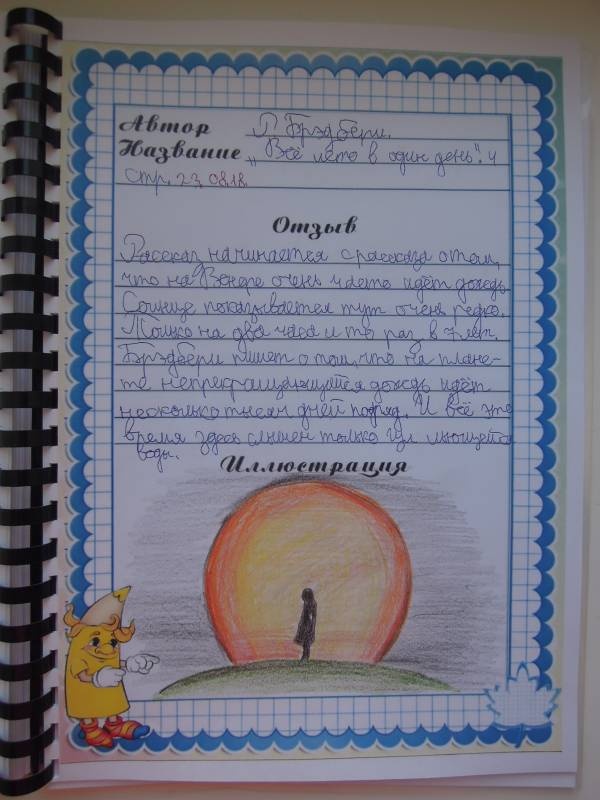 Автор Р. Брэдбери.
Название „Всё лето в один день". 4
стр. 23.08.18.
Отзыв
Рассказ начинается с рассказа о том,
что на Венере очень часто идёт дождь
Солнце показывается тут очень редко.
Только на два часа и то раз в 7 лет.
Брэдбери пишет о том, что на плане-
те непрекращающийся дождь идёт
несколько тысяч дней подряд. И всё это
время здесь слышен только гул льющейся
воды.
Иллюстрация